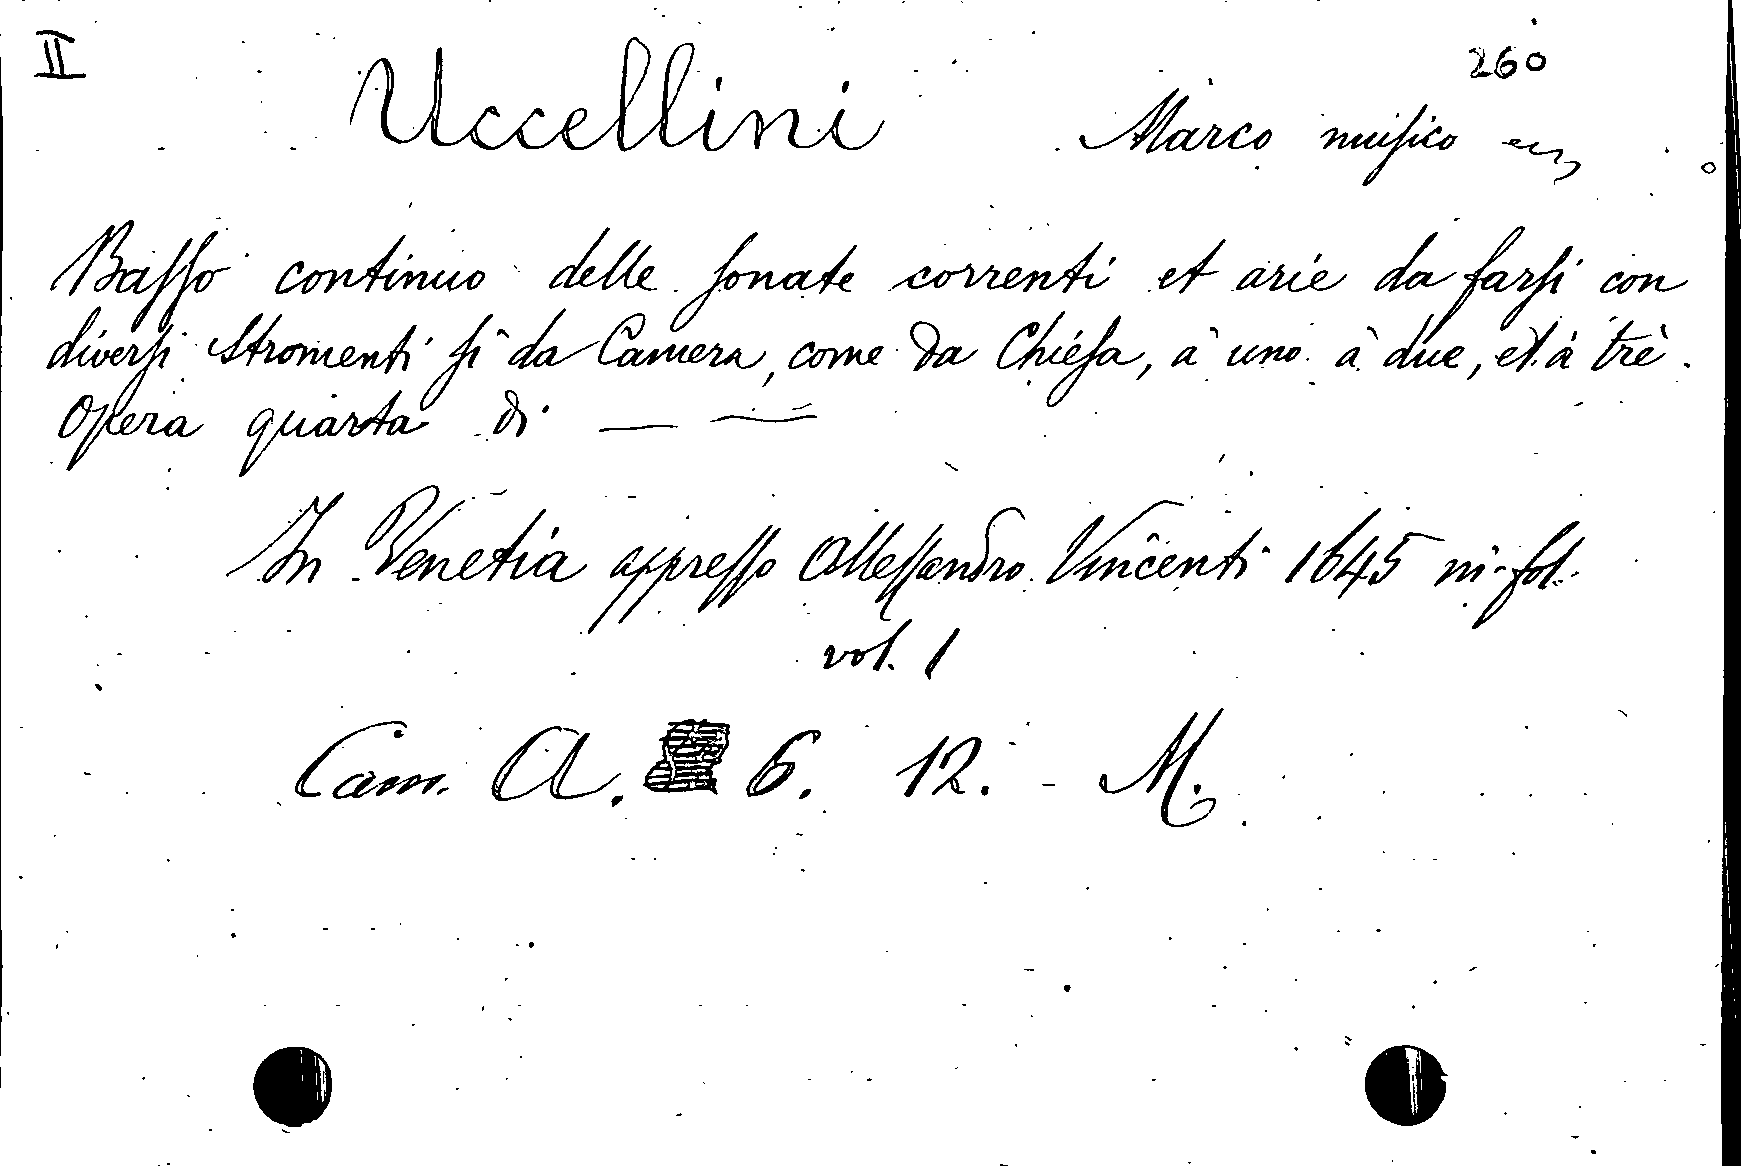 II
260
Uccellini Marco musico
Basso continuo delle sonate correnti et arie da farsi con
diversi stromenti si da Camera, come da Chiesa, à uno à due, et à trè.
Opera quarta di — —
In Venetia appresso Allessandro Vincenti 1645 in fol.
vol. 1
Cam. A. 6. 12. - M.